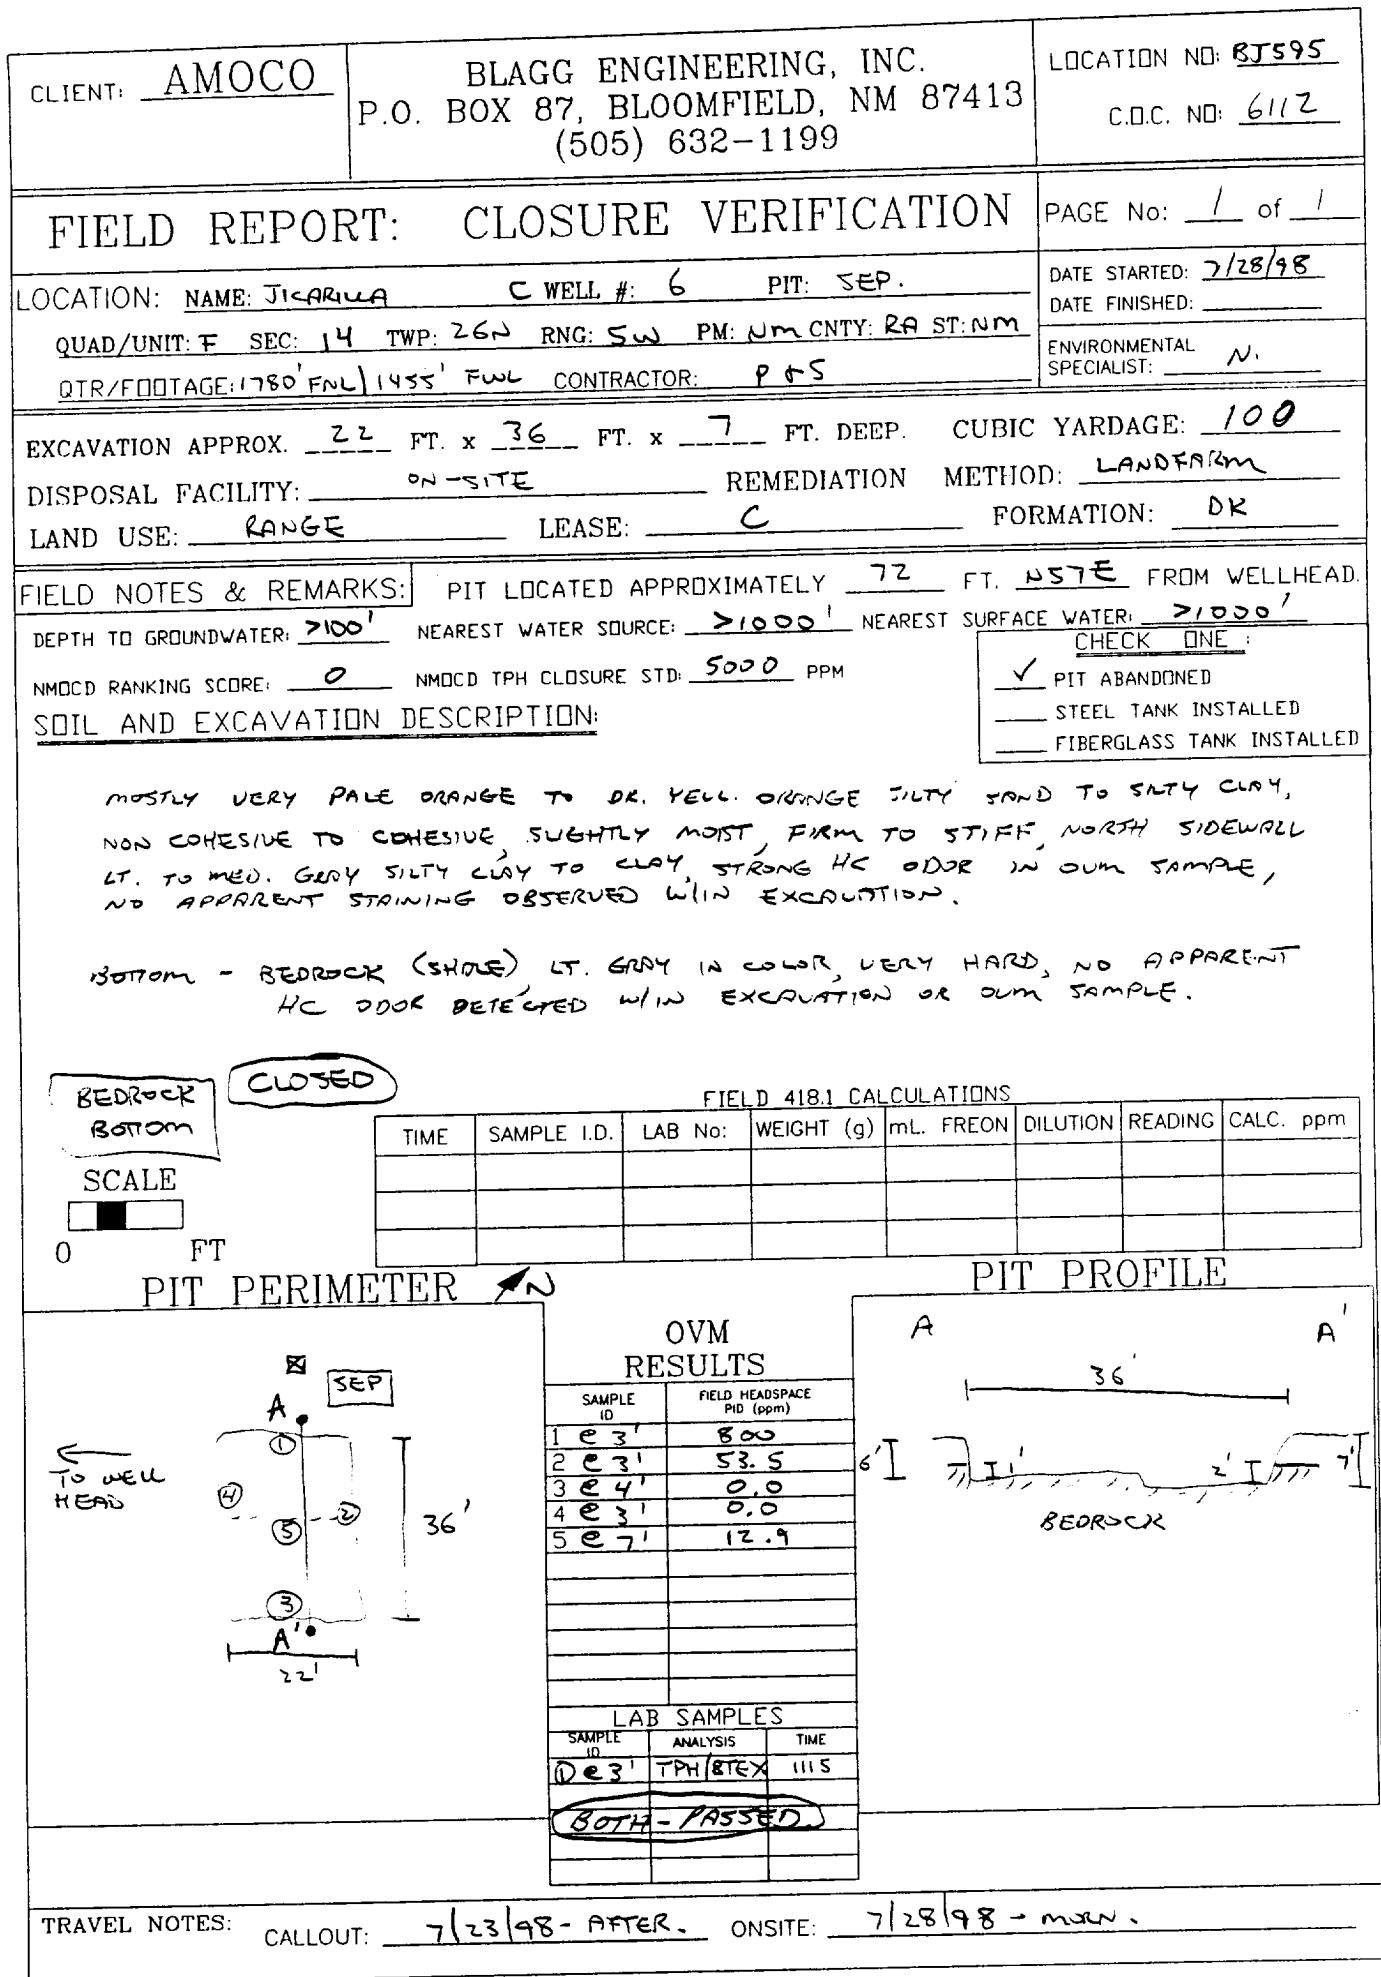 CLIENT: AMOCO
BLAGG ENGINEERING, INC.
P.O. BOX 87, BLOOMFIELD, NM 87413
(505) 632-1199
LOCATION NO: BJ595
C.O.C. NO: 6112
FIELD REPORT: CLOSURE VERIFICATION
PAGE No: 1 of 1
LOCATION: NAME: JICARILLA C WELL #: 6 PIT: SEP.
QUAD/UNIT: F SEC: 14 TWP: 26N RNG: 5W PM: NM CNTY: RA ST: NM
QTR/FOOTAGE: 1780' FNL/1455' FWL CONTRACTOR: P & S
DATE STARTED: 7/28/98
DATE FINISHED:
ENVIRONMENTAL
SPECIALIST: N.
EXCAVATION APPROX. 22 FT. x 36 FT. x 7 FT. DEEP. CUBIC YARDAGE: 100
DISPOSAL FACILITY: ON-SITE REMEDIATION METHOD: LANDFARM
LAND USE: RANGE LEASE: C FORMATION: DK
FIELD NOTES & REMARKS: PIT LOCATED APPROXIMATELY 72 FT. N57E FROM WELLHEAD.
DEPTH TO GROUNDWATER: >100' NEAREST WATER SOURCE: >1000' NEAREST SURFACE WATER: >1000'
NMOCD RANKING SCORE: 0 NMOCD TPH CLOSURE STD: 5000 PPM
CHECK ONE :
✓ PIT ABANDONED
STEEL TANK INSTALLED
FIBERGLASS TANK INSTALLED
SOIL AND EXCAVATION DESCRIPTION:
MOSTLY VERY PALE ORANGE TO DK. YELL. ORANGE SILTY SAND TO SILTY CLAY,
NON COHESIVE TO COHESIVE, SLIGHTLY MOIST, FIRM TO STIFF, NORTH SIDEWALL
LT. TO MED. GRAY SILTY CLAY TO CLAY, STRONG HC ODOR IN OVM SAMPLE,
NO APPARENT STAINING OBSERVED W/IN EXCAVATION.
BOTTOM - BEDROCK (SHALE) LT. GRAY IN COLOR, VERY HARD, NO APPARENT
HC ODOR DETECTED W/IN EXCAVATION OR OVM SAMPLE.
BEDROCK
BOTTOM
CLOSED
SCALE
0 FT
FIELD 418.1 CALCULATIONS
TIME SAMPLE I.D. LAB No: WEIGHT (g) mL. FREON DILUTION READING CALC. ppm
PIT PERIMETER N
SEP
A
1
TO WELL
HEAD
4
2
5
36'
3
A'
22'
OVM
RESULTS
SAMPLE ID FIELD HEADSPACE PID (ppm)
1 @ 3' 800
2 @ 3' 53.5
3 @ 4' 0.0
4 @ 3' 0.0
5 @ 7' 12.9
LAB SAMPLES
SAMPLE ID ANALYSIS TIME
① @ 3' TPH/BTEX 1115
BOTH - PASSED
PIT PROFILE
A A'
36'
6' 1' 2' 7'
BEDROCK
TRAVEL NOTES: CALLOUT: 7/23/98 - AFTER. ONSITE: 7/28/98 - MORN.